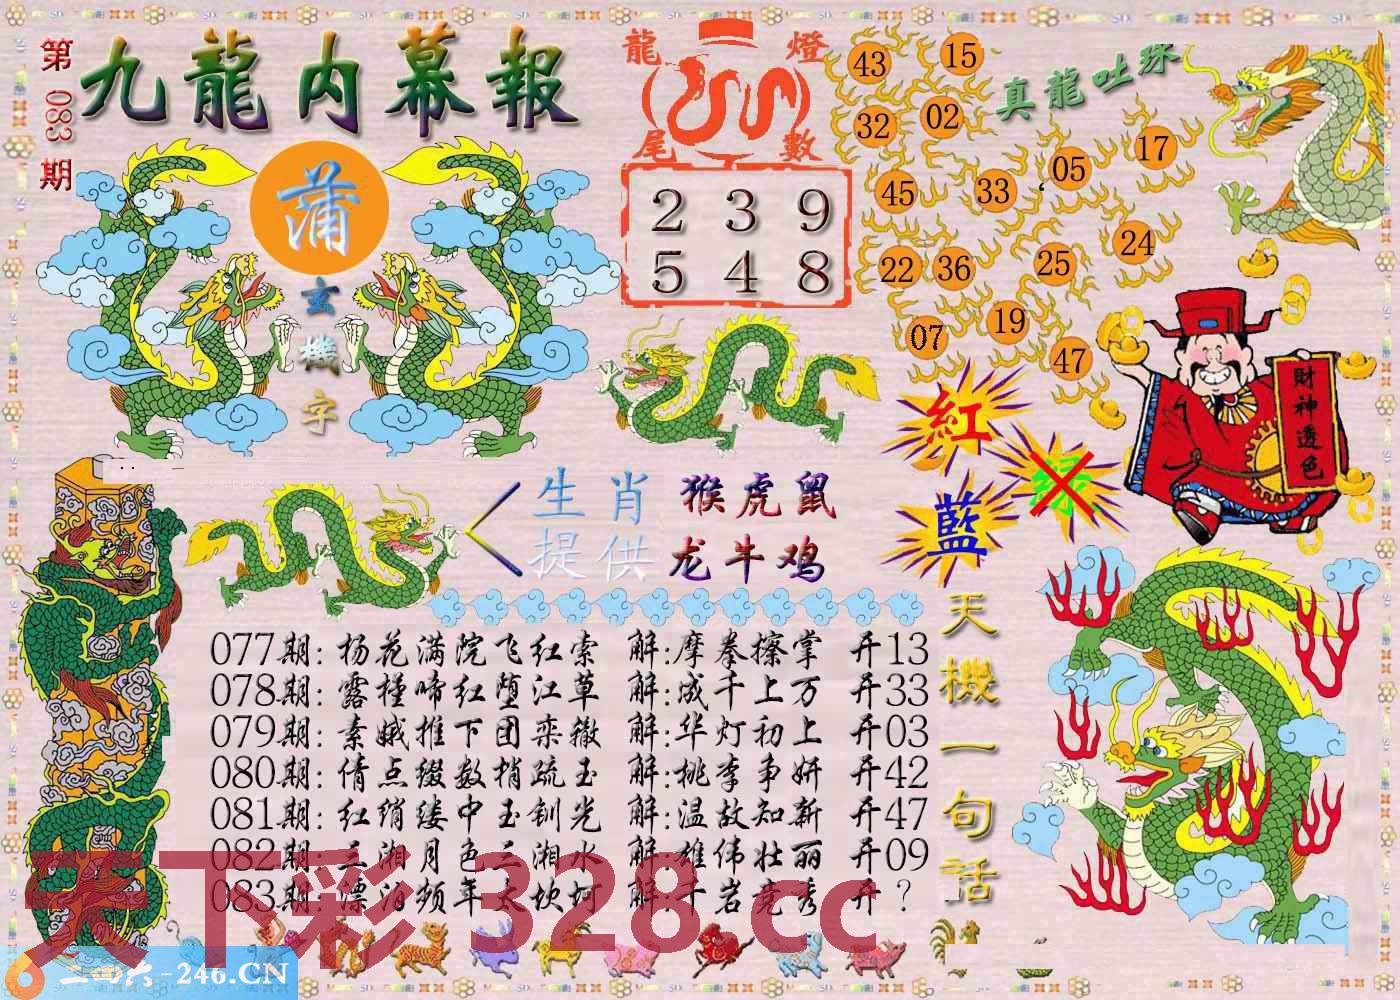 第083期
九龍内幕報
蒲
玄機字
龍燈
尾數
2 3 9
5 4 8
真龍吐珠
43 15
32 02
45 33 05 17
22 36 25 24
07 19 47
財神透色
紅
绿
藍
生肖 猴虎鼠
提供 龙牛鸡
077期: 杨花满院飞红索 解:摩拳擦掌 开13
078期: 露槿啼红堕江草 解:成千上万 开33
079期: 素娥推下团栾辙 解:华灯初上 开03
080期: 倩点缀数梢疏玉 解:桃李争妍 开42
081期: 红绡缕中玉钏光 解:温故知新 开47
082期: 三湘月色三湘水 解:雄伟壮丽 开09
083期: 漂泊频年太坎坷 解:千岩竞秀 开 ?
天機一句話
天下彩 328.cc
二四六-246.CN